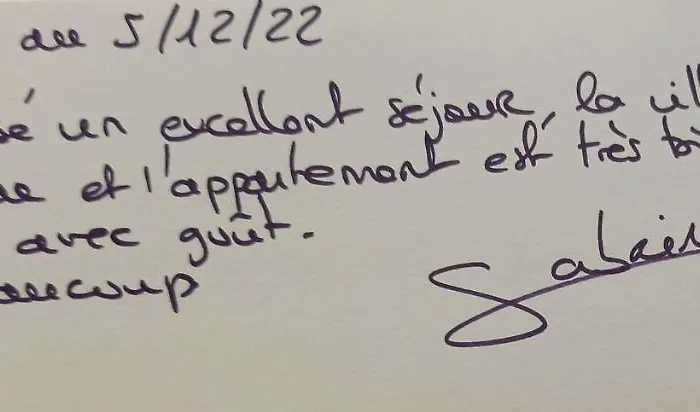 au 5/12/22
sé un excellent séjour, la vill
ue et l'appartement est très bi
avec goût.
aucoup